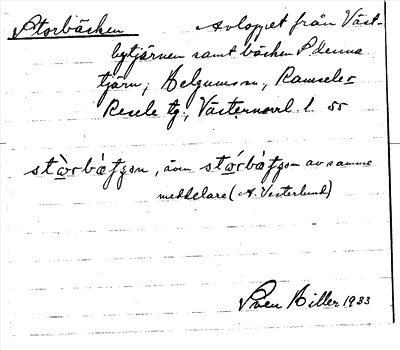 Storbäcken Avloppet från Väst-
bytjärnen samt bäcken S denna
tjärn, Helgums sn, Ramsele-
Resele tg., Västernorrl. l.
stòrbæ̀tʃən, även stòrbæ̀tʃən av samme
meddelare (A. Vesterlund)
Sven Hiller 1933